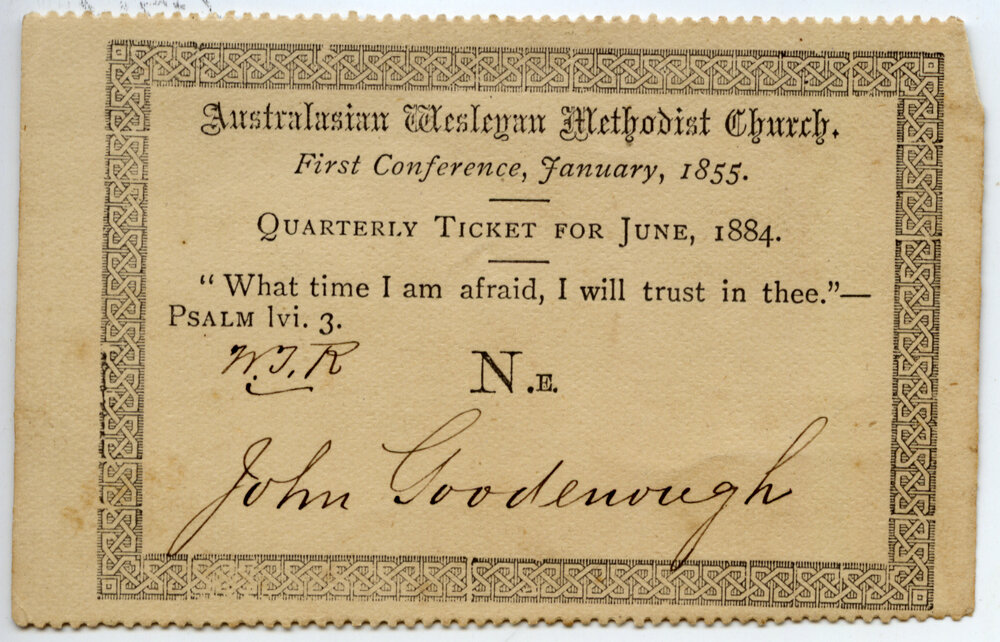 Australasian Wesleyan Methodist Church.
First Conference, January, 1855.
QUARTERLY TICKET FOR JUNE, 1884.
“ What time I am afraid, I will trust in thee.”—
PSALM lvi. 3.
W.T.R
N.E.
John Goodenough